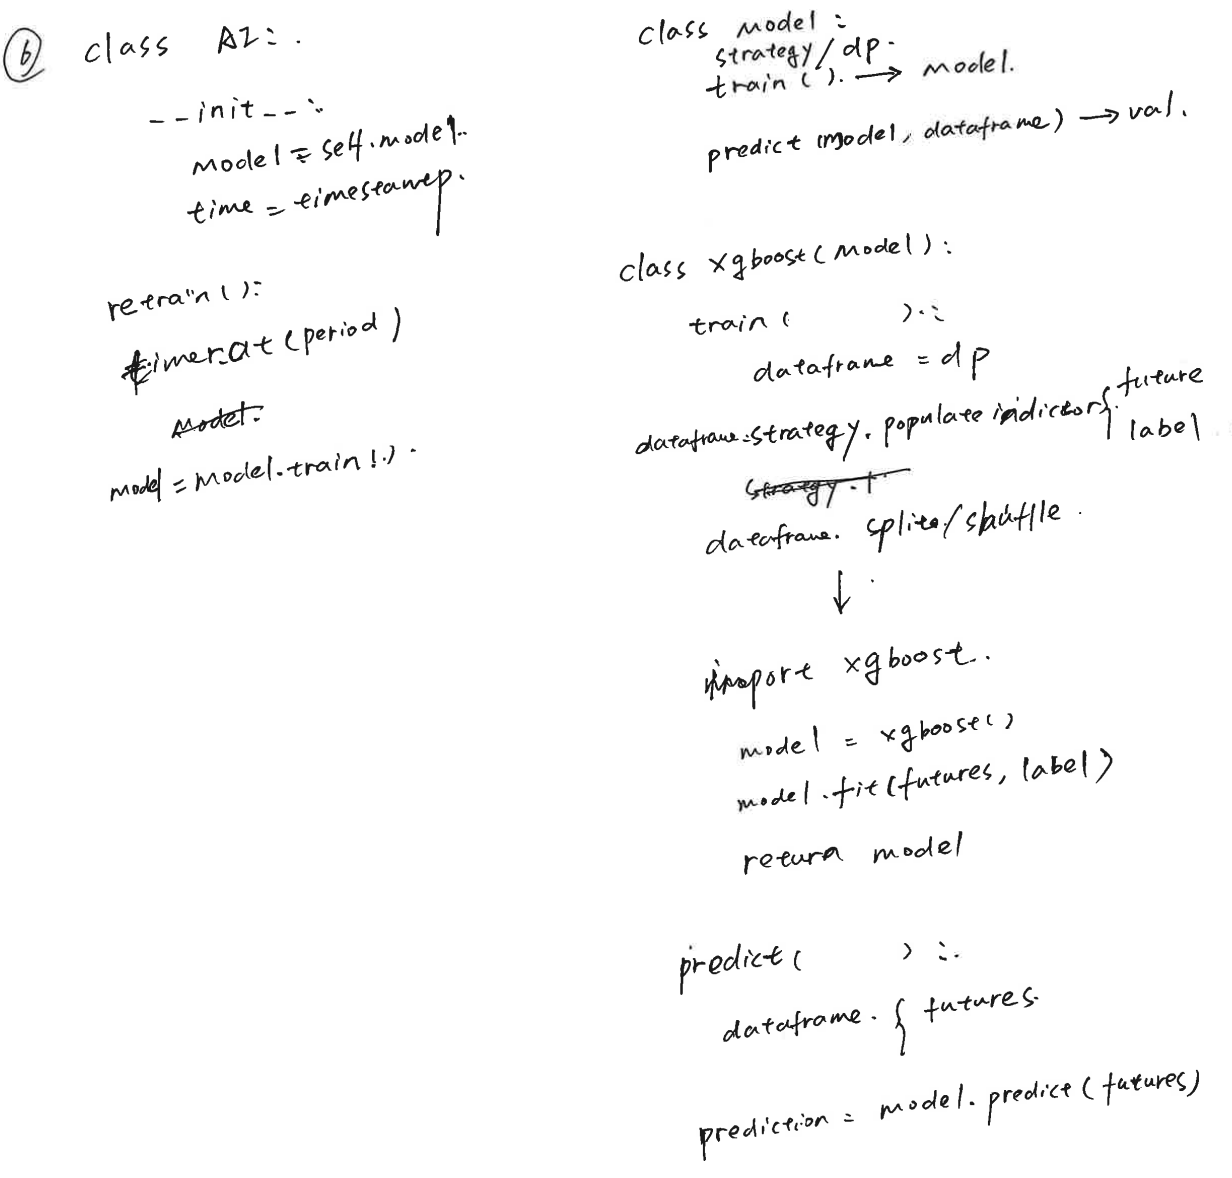 ⑥ class AI:.
--init--:
model = self.model.
time = timestamp.
retrain():
timer.at(period)
model.
model = model.train().
class model:
strategy/dp.
train(). → model.
predict(model, dataframe) → val.
class xgboost(model):
train( ):
dataframe = dp
dataframe=strategy.populate indictor{ future
label
strategy.t
dataframe. splite/shuffle.
↓
import xgboost.
model = xgboost()
model.fit(futures, label)
return model
predict( ):.
dataframe. { futures.
prediction = model.predict(futures)